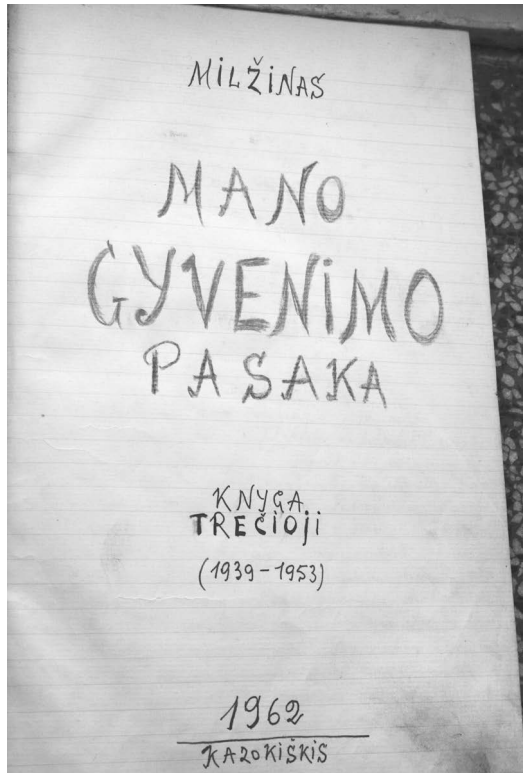 MILŽINAS
MANO
GYVENIMO
PASAKA
KNYGA
TREČIOJI
(1939-1953)
1962
KAZOKIŠKIS